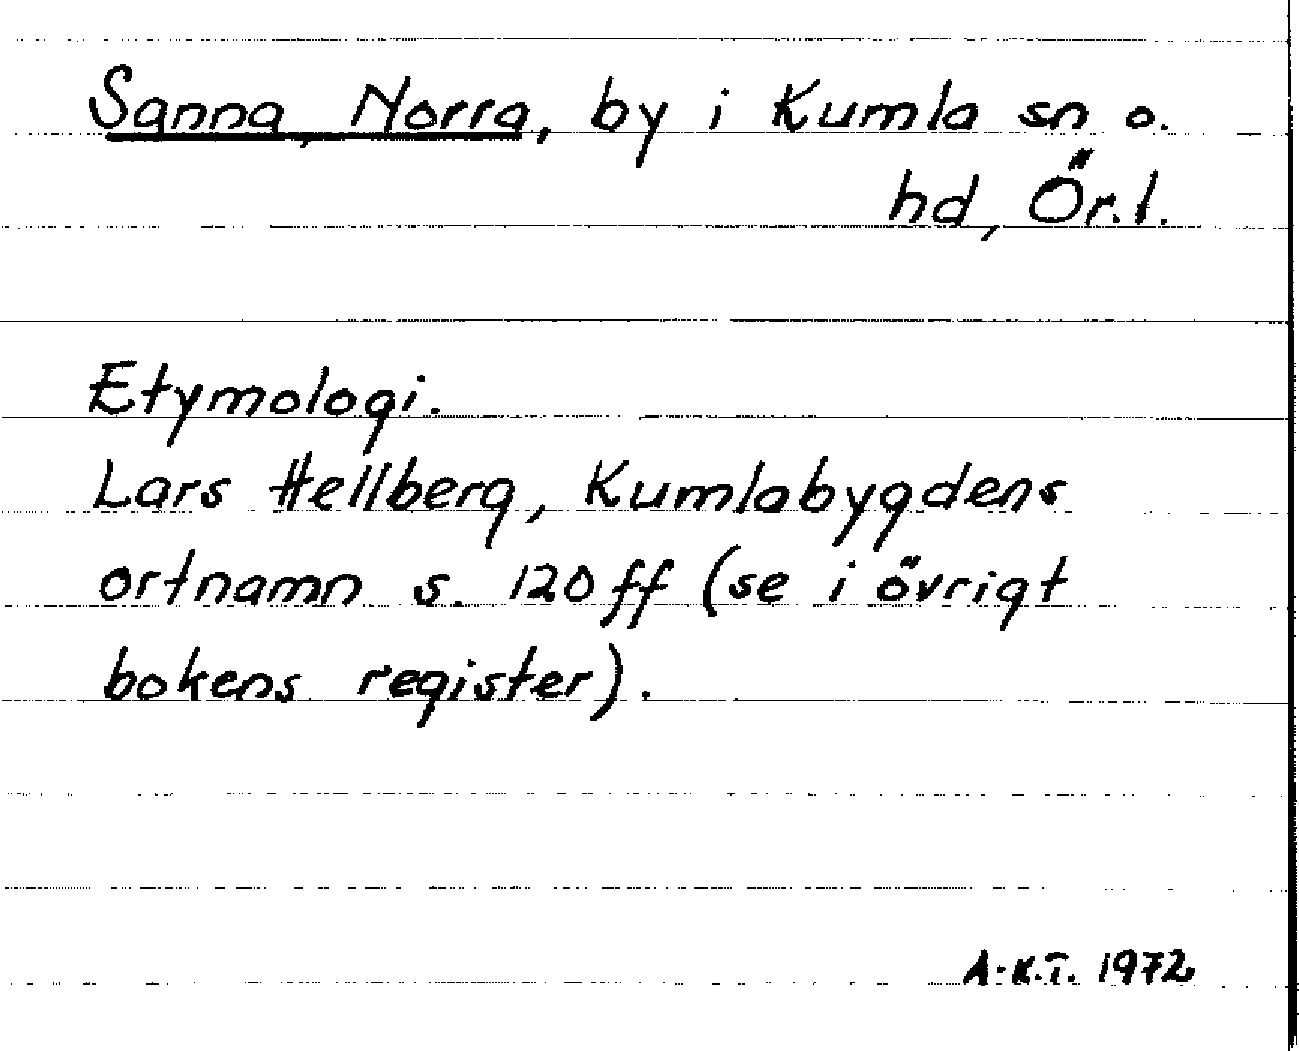 Sanna, Norra, by i Kumla sn o.
hd, Ör.l.
Etymologi.
Lars Hellberg, Kumlabygdens
ortnamn s. 120 ff (se i övrigt
bokens register).
A-K.T. 1972